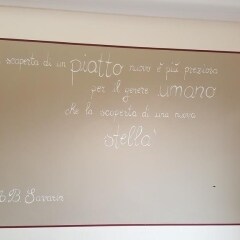 scoperta di un piatto nuovo è più preziosa
per il genere umano
che la scoperta di una nuova
stella
B Savarin